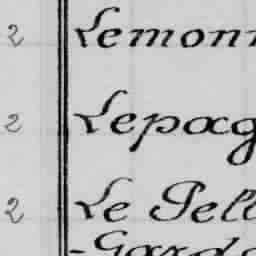 2 Lemon
2 Lepag
2 Le Pell
-Garde